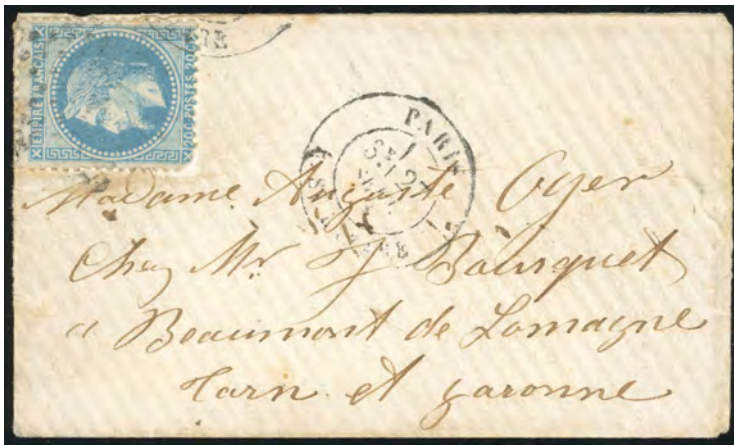 EMPIRE FRANÇAIS
20C POSTES 20C
PARIS
Madame Auguste Oyer
Chez Mr Bousquet
a Beaumont de Lomagne
Tarn et garonne